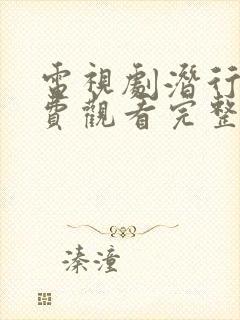 電視劇潛行
費觀看完整
溱潼